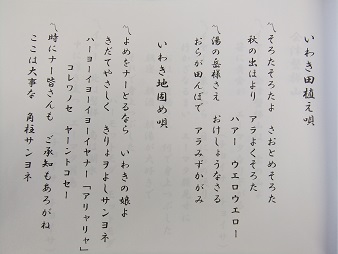 いわき田植え唄
〽そろたそろたよ さおとめそろた
秋の出はより アラよくそろた
ハアー ウエロウエロー
〽湯の岳様さえ おけしょうなさる
おらが田んぼで アラみずかがみ
いわき地固め唄
〽よめをナーとるなら いわきの娘よ
きだてやさしく きりょヲよしサンヨネ
ハーヨーイヨーイヨーイヤナー「アリャリャ」
コレワノセ ヤーントコセー
〽時にナー皆さんも ご承知もあろがね
ここは大事な 角柱サンヨネ